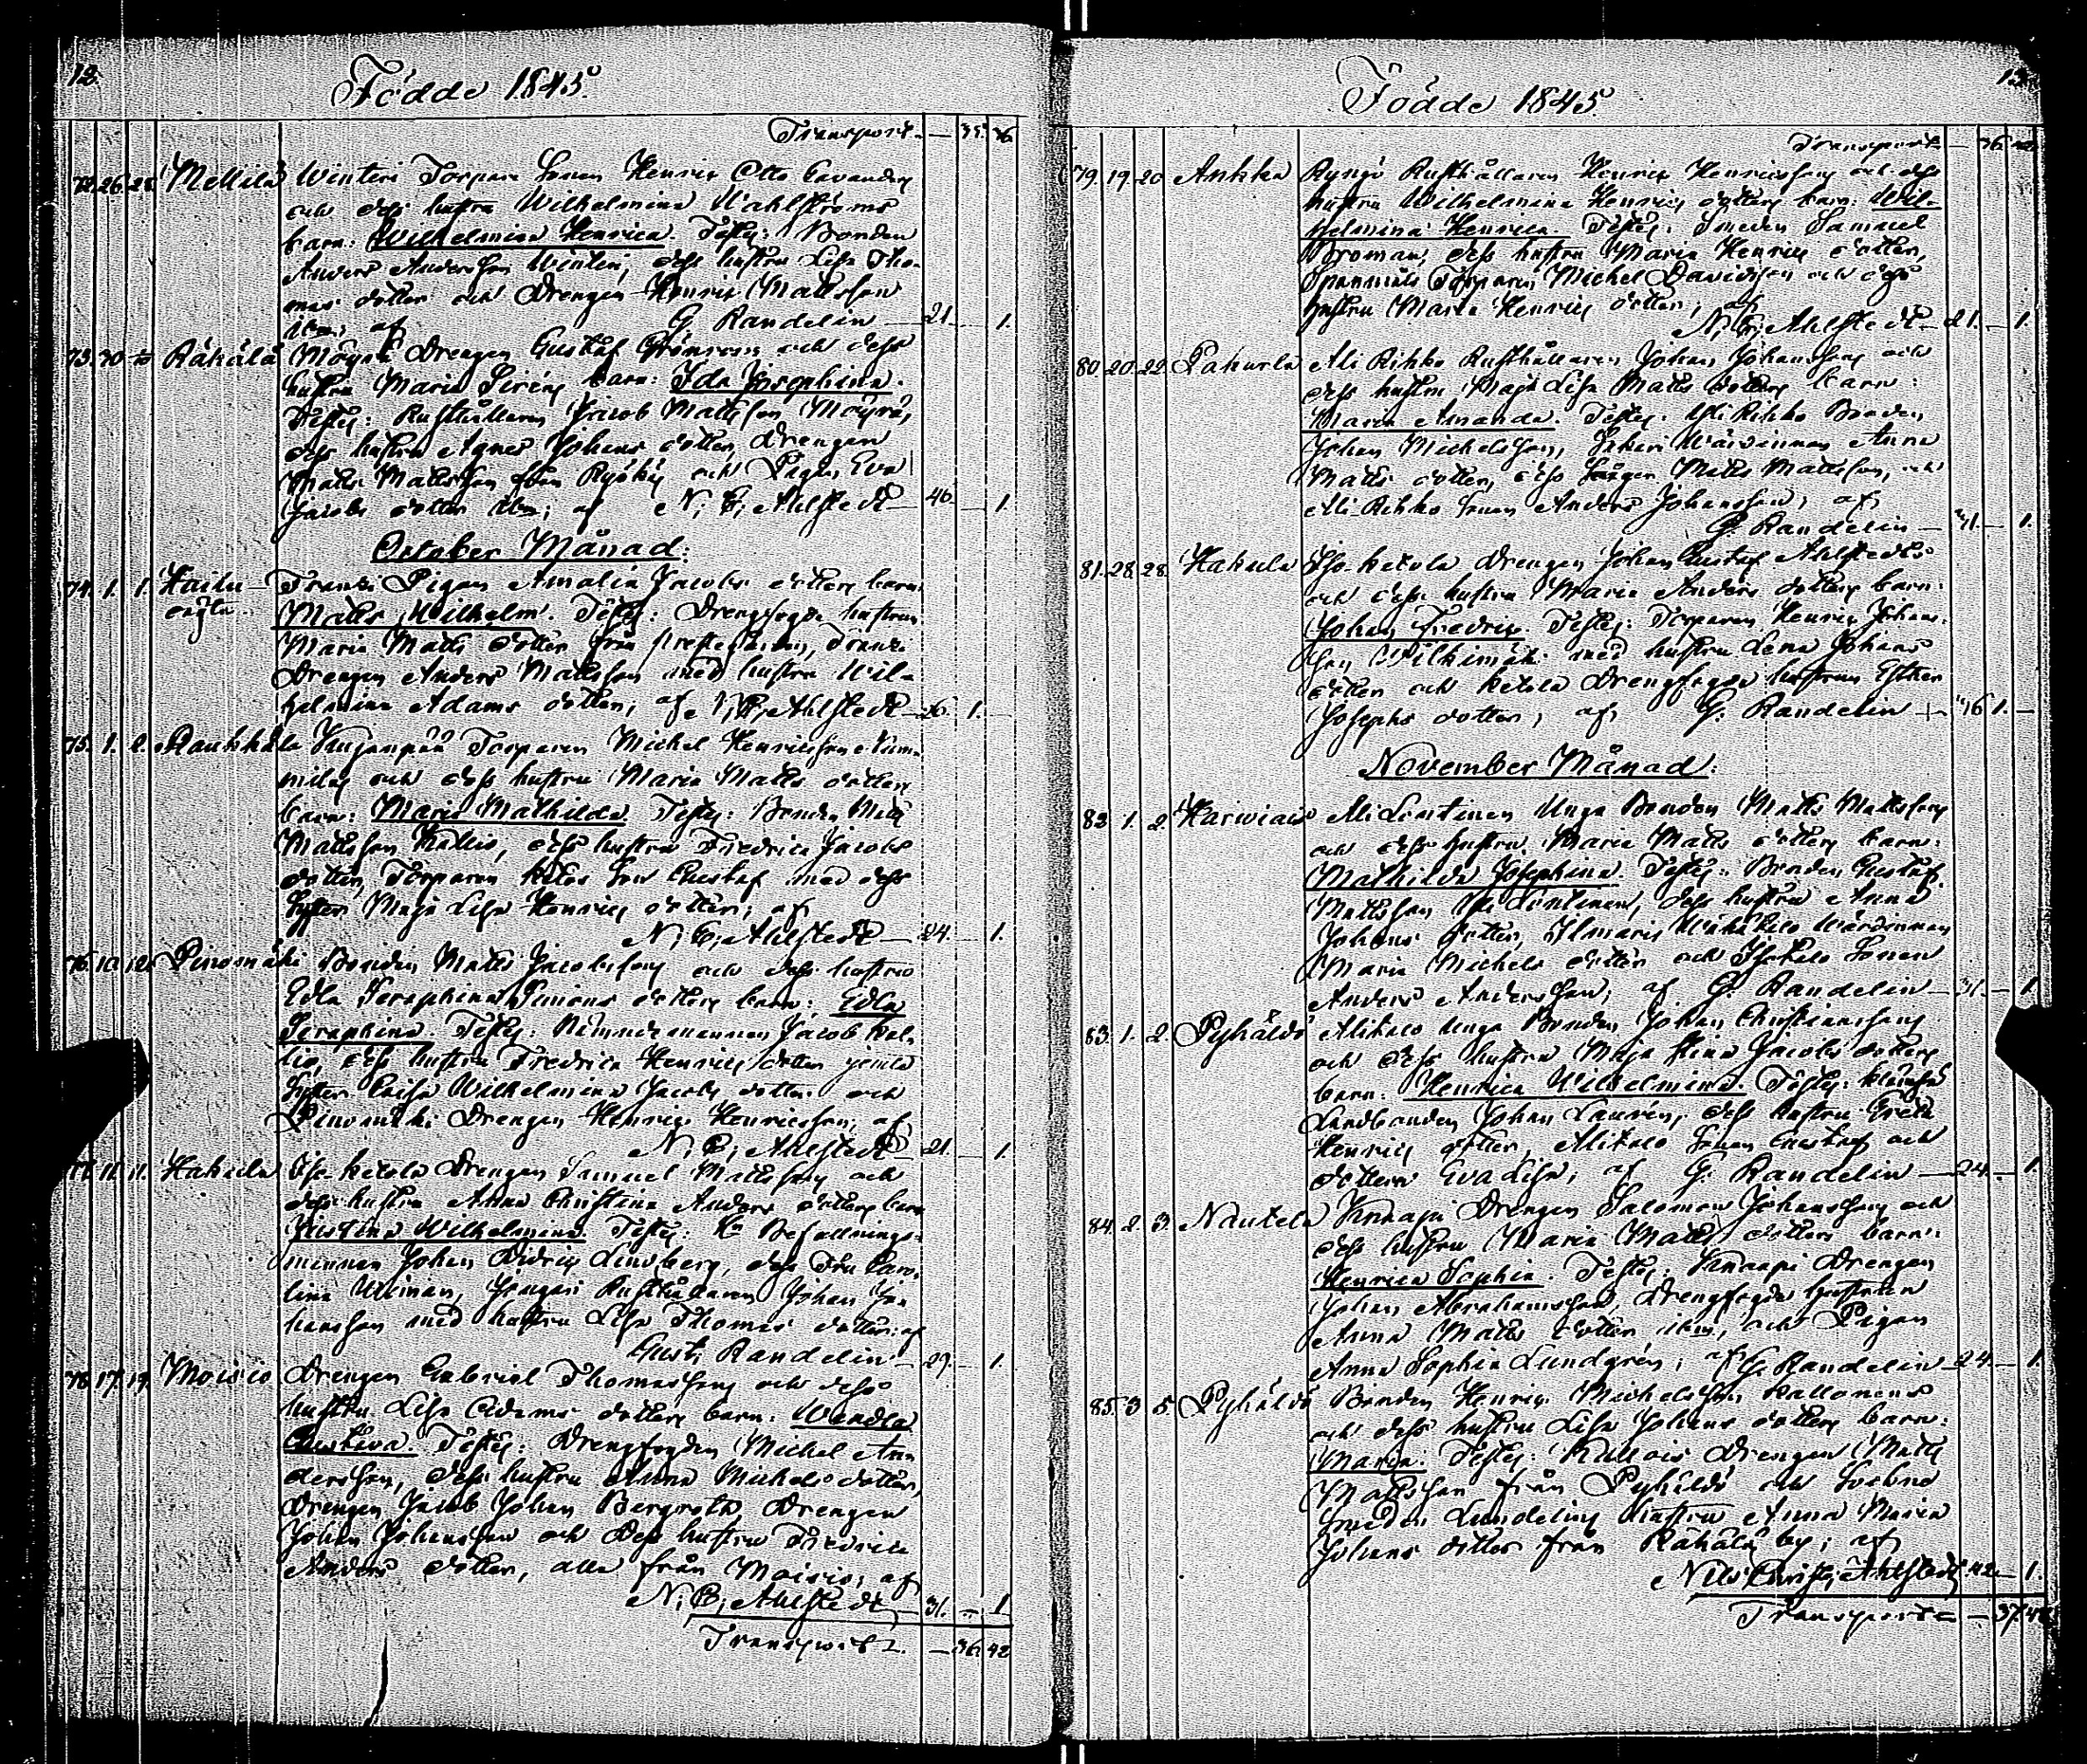 12.
Födde 1845.
Transport. — 35. 36
72. 26. 28. Mellilä Winteri Torpare Sonen Henric Otto Cavanders
och dess hustru Wilhelmina Wahlströms
barn: Wilhelmina Henrica. Testes: Bonden
Anders Andersson Winteri, dess hustru Lisa Tho-
mas dotter och Drengen Henric Mattsson
ibm; af G. Randelin — 21. — 1.
73. 30. Räkälä Möyrä Drengen Gustaf Grönroos och dess
hustru Maria Siréns barn: Ida Josephina.
Testes: Rusthållaren Jacob Mattsson Möyrä,
dess hustru Agnes Johans dotter, Drengen
Matts Mattsson från Ryökäs och Pigan Eva
Jacobs dotter ibm; af N. C. Ahlstedt — 40. — 1.
October Månad:
74. 1. 1. Kailu- Franzi Pigan Amalia Jacobs dotters barn:
Matts Wilhelm. Testes: Drengfogde hustrun
Maria Matts dotter från Prestegården, Franzi
Drengen Anders Mattsson med hustru Wil-
helmina Adams dotter, af N. C. Ahlstedt — 26. 1. —
75. 1. 2. Raukkala Kujanpää Torparen Michel Henricsson Num-
milas och dess hustru Maria Matts dotters
barn: Maria Mathilda. Testes: Bonden Matts
Mattsson Kallio, dess hustru Fredrica Jacobs
dotter, Torparen Son Gustaf med dess
Syster Maja Lisa Henrics dotter; af
N. C. Ahlstedt — 24. — 1.
76. 10. 12. Pinomäki Bonden Matts Jacobssons och dess hustru
Edla Seraphina Simons dotters barn: Edla
Seraphina. Testes: Nämndemannen Jacob Kal-
lio, dess hustru Fredrica Henrics dotter
Syster Caisa Wilhelmina Jacobs dotter och
Pinomäki Drengen Henric Henricsson; af
N. C. Ahlstedt — 21. — 1.
77. 11. 11. Hakula Iso-Ketola Drengen Samuel Mattssons och
dess hustru Anna Christina Anders dotters barn
Justina Wilhelmina. Testes: Hr Befallnings-
mannen Johan Didric Lindberg, dess Fru Caro-
lina Wiman, Rusthållaren Johan Jo-
hansson med hustru Lisa Thomas dotter; af
Gust. Randelin — 29. — 1.
78. 17. 19. Moisio Drengen Gabriel Thomassons och dess
hustru Lisa Adams dotters barn: Wendla
Gustava. Testes: Drengfogden Michel An-
dersson, dess hustru Anna Michels dotter,
Drengen Jacob Johan Bergroth, Drengen
Johan Johansson och dess hustru Fredrica
Anders dotter, alla från Moisio; af
N. C. Ahlstedt — 31. — 1
Transport — 36. 42
13.
Födde 1845.
Transport — 36. 42.
79. 19. 20. Ankka Ryngö Rusthållaren Henric Henricssons och dess
hustru Wilhelmina Henrics dotters barn: Wil-
helmina Henrica. Testes: Smeden Samuel
Broman, dess hustru Maria Henrics dotter,
Torparen Michel Davidsson och dess
hustru Maria Henrics dotter; af
N. C. Ahlstedt — 21. — 1.
80. 20. 22. Pakurla Ali Rikko Rusthållaren Johan Johanssons och
dess hustru Maja Lisa Matts dotters barn:
Maria Amanda. Testes: Yli Rikko Bonden
Johan Michelsson, Wärdinnan Anna
Matts dotter, dess Matts Mattsson, och
Ali-Rikko Sonen Anders Johansson; af
G. Randelin — 31. — 1.
81. 28. 28. Hakula Iso-Ketola Drengen Johan Gustaf Ahlstedts
och dess hustru Maria Anders dotters barn:
Johan Fredric. Testes: Torparen Henric Johans-
son med hustru Lena Johans
dotter och Ketola Drengfogde hustrun Esther
Josephs dotter; af G. Randelin — 46 1. —
November Månad:
82. 1. 2. Karwiais Ali Lontinen Unga Bonden Matts Mattssons
och dess hustru Maria Matts dotters barn:
Mathilda Josephina. Testes: Bonden Gustaf
Mattsson Lontinen, dess hustru Anna
Johans dotter, Ilmaris Wärdinnan
Maria Michels dotter och Sonen
Anders Andersson; af G. Randelin — 31. — 1.
83. 1. 2. Pyhäldö Alitalo Unga Bonden Johan Christianssons
och dess hustru Maja Stina Jacobs dotters
barn: Henrica Wilhelmina. Testes:
Landbonden Johan Laurén, dess hustru Greta
Henrics dotter, Alitalo Sonen Gustaf och
dottern Eva Lisa; af G. Randelin — 24. — 1.
84. 2. 3. Nautela Knaapi Drengen Salomon Johanssons och
dess hustru Maria Matts dotters barn:
Henrica Sophia. Testes: Knaapi Drengen
Johan Abrahamsson, Drengfogde hustrun
Anna Matts dotter ibm, och Pigan
Anna Sophia Lundgrén; af G. Randelin — 24. — 1.
85. 3 5. Pyhäldö Bonden Henric Michelsson Kallonens
och dess hustru Lisa Johans dotters barn:
Maria. Testes: Drengen Matts
Mattsson från Pyhäldö och
Smeden Lundelins hustru Anna Maria
Johans dotter från Räkälä by; af
Nils Christ. Ahlstedt 42 — 1.
Transport — 37. 48